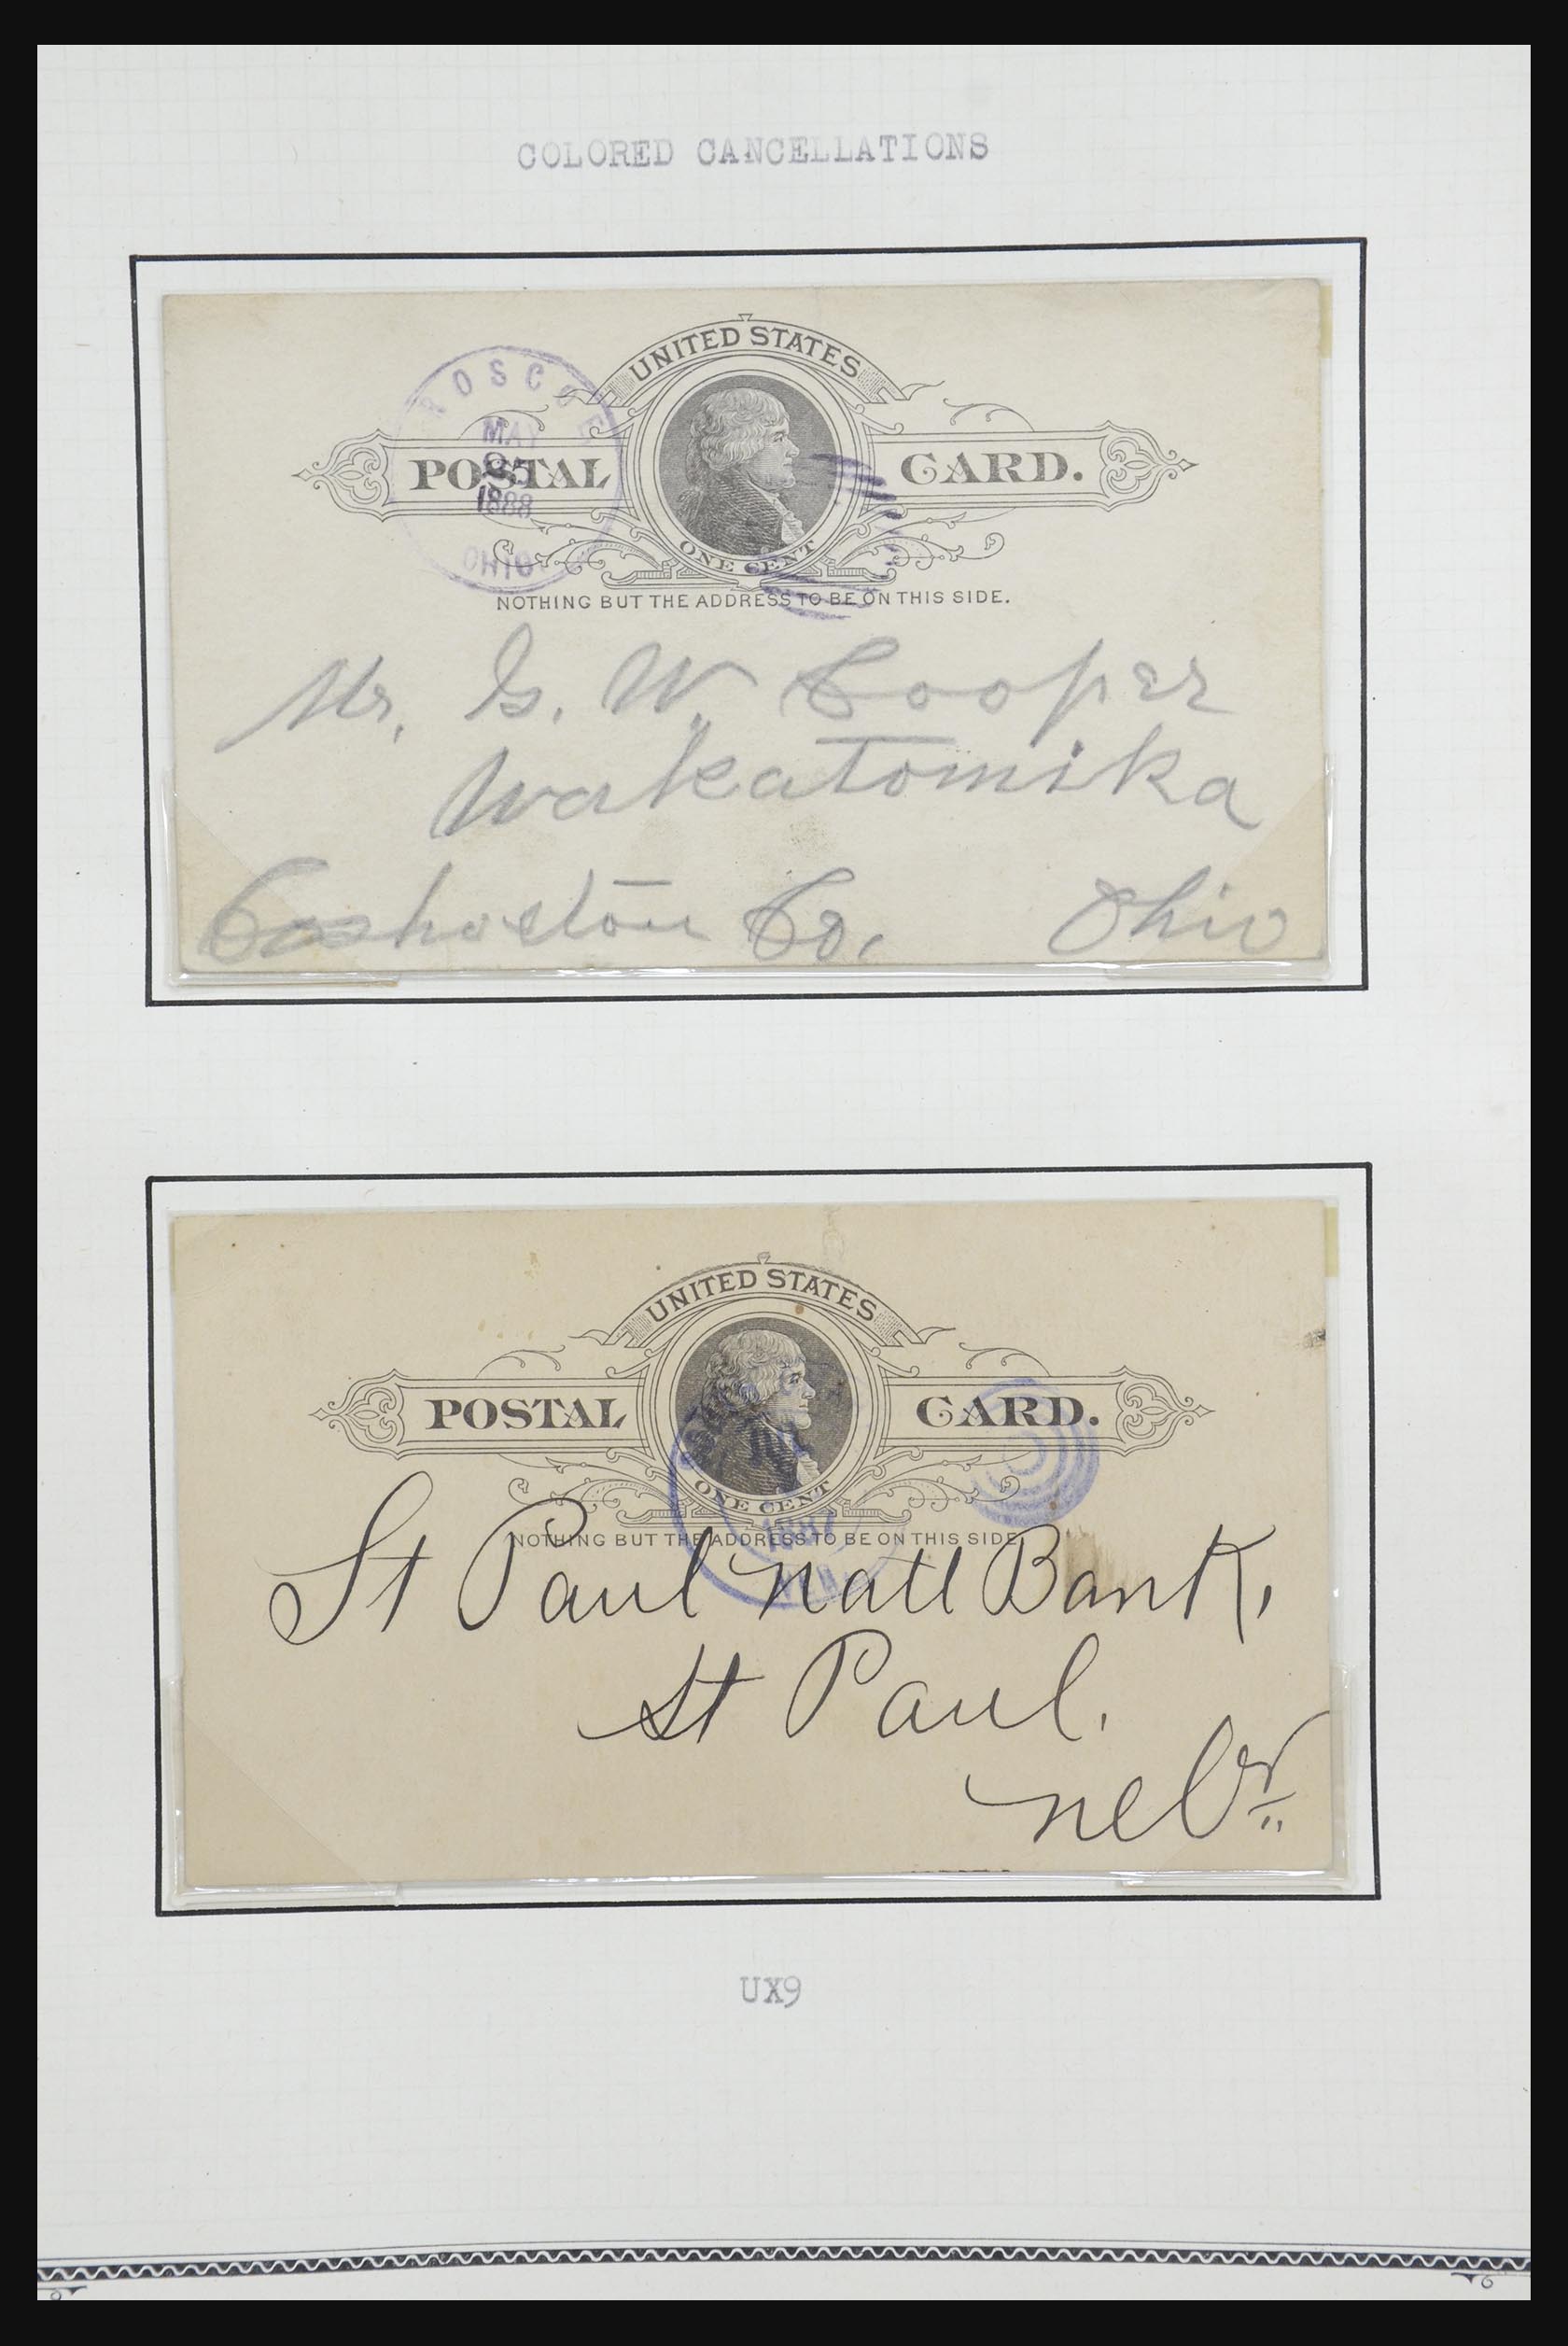 COLORED CANCELLATIONS
UNITED STATES
ROSCOE
MAY
25
1888
OHIO
POSTAL CARD.
ONE CENT
NOTHING BUT THE ADDRESS TO BE ON THIS SIDE.
Mr. G. W. Cooper
Wakatomika
Coshocton Co. Ohio
UNITED STATES
POSTAL CARD.
ONE CENT
1887
NOTHING BUT THE ADDRESS TO BE ON THIS SIDE
St Paul Natl Bank,
St Paul.
Nebr
UX9